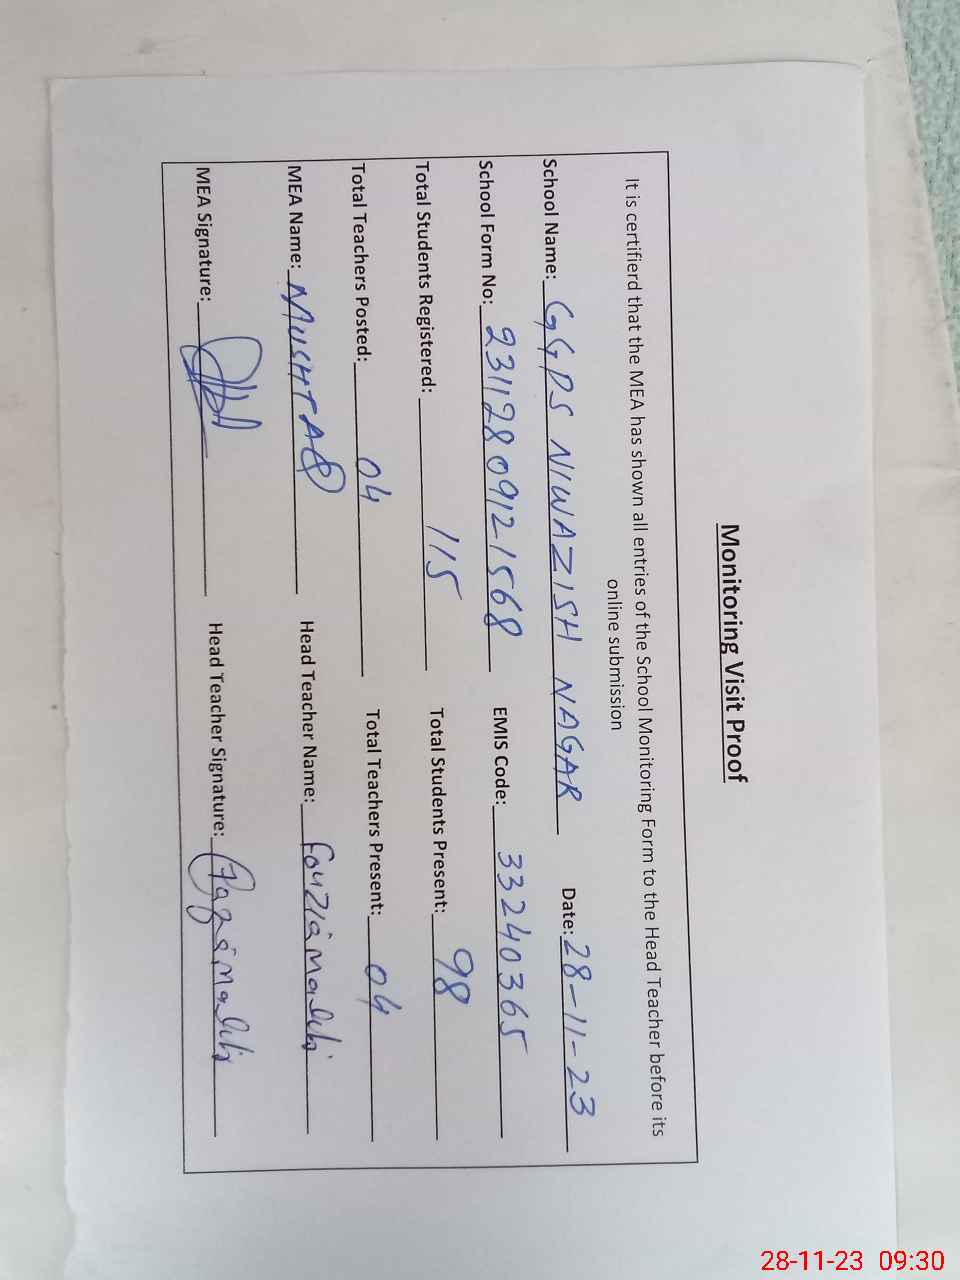 Monitoring Visit Proof
It is certifierd that the MEA has shown all entries of the School Monitoring Form to the Head Teacher before its
online submission
School Name: GGPS NIWAZISH NAGAR Date: 28-11-23
School Form No: 231128091 21568 EMIS Code: 33240365
Total Students Registered: 115 Total Students Present: 98
Total Teachers Posted: 04 Total Teachers Present: 04
MEA Name: MUSHTAQ Head Teacher Name: Fouzia Malik
MEA Signature: Head Teacher Signature:
28-11-23 09:30